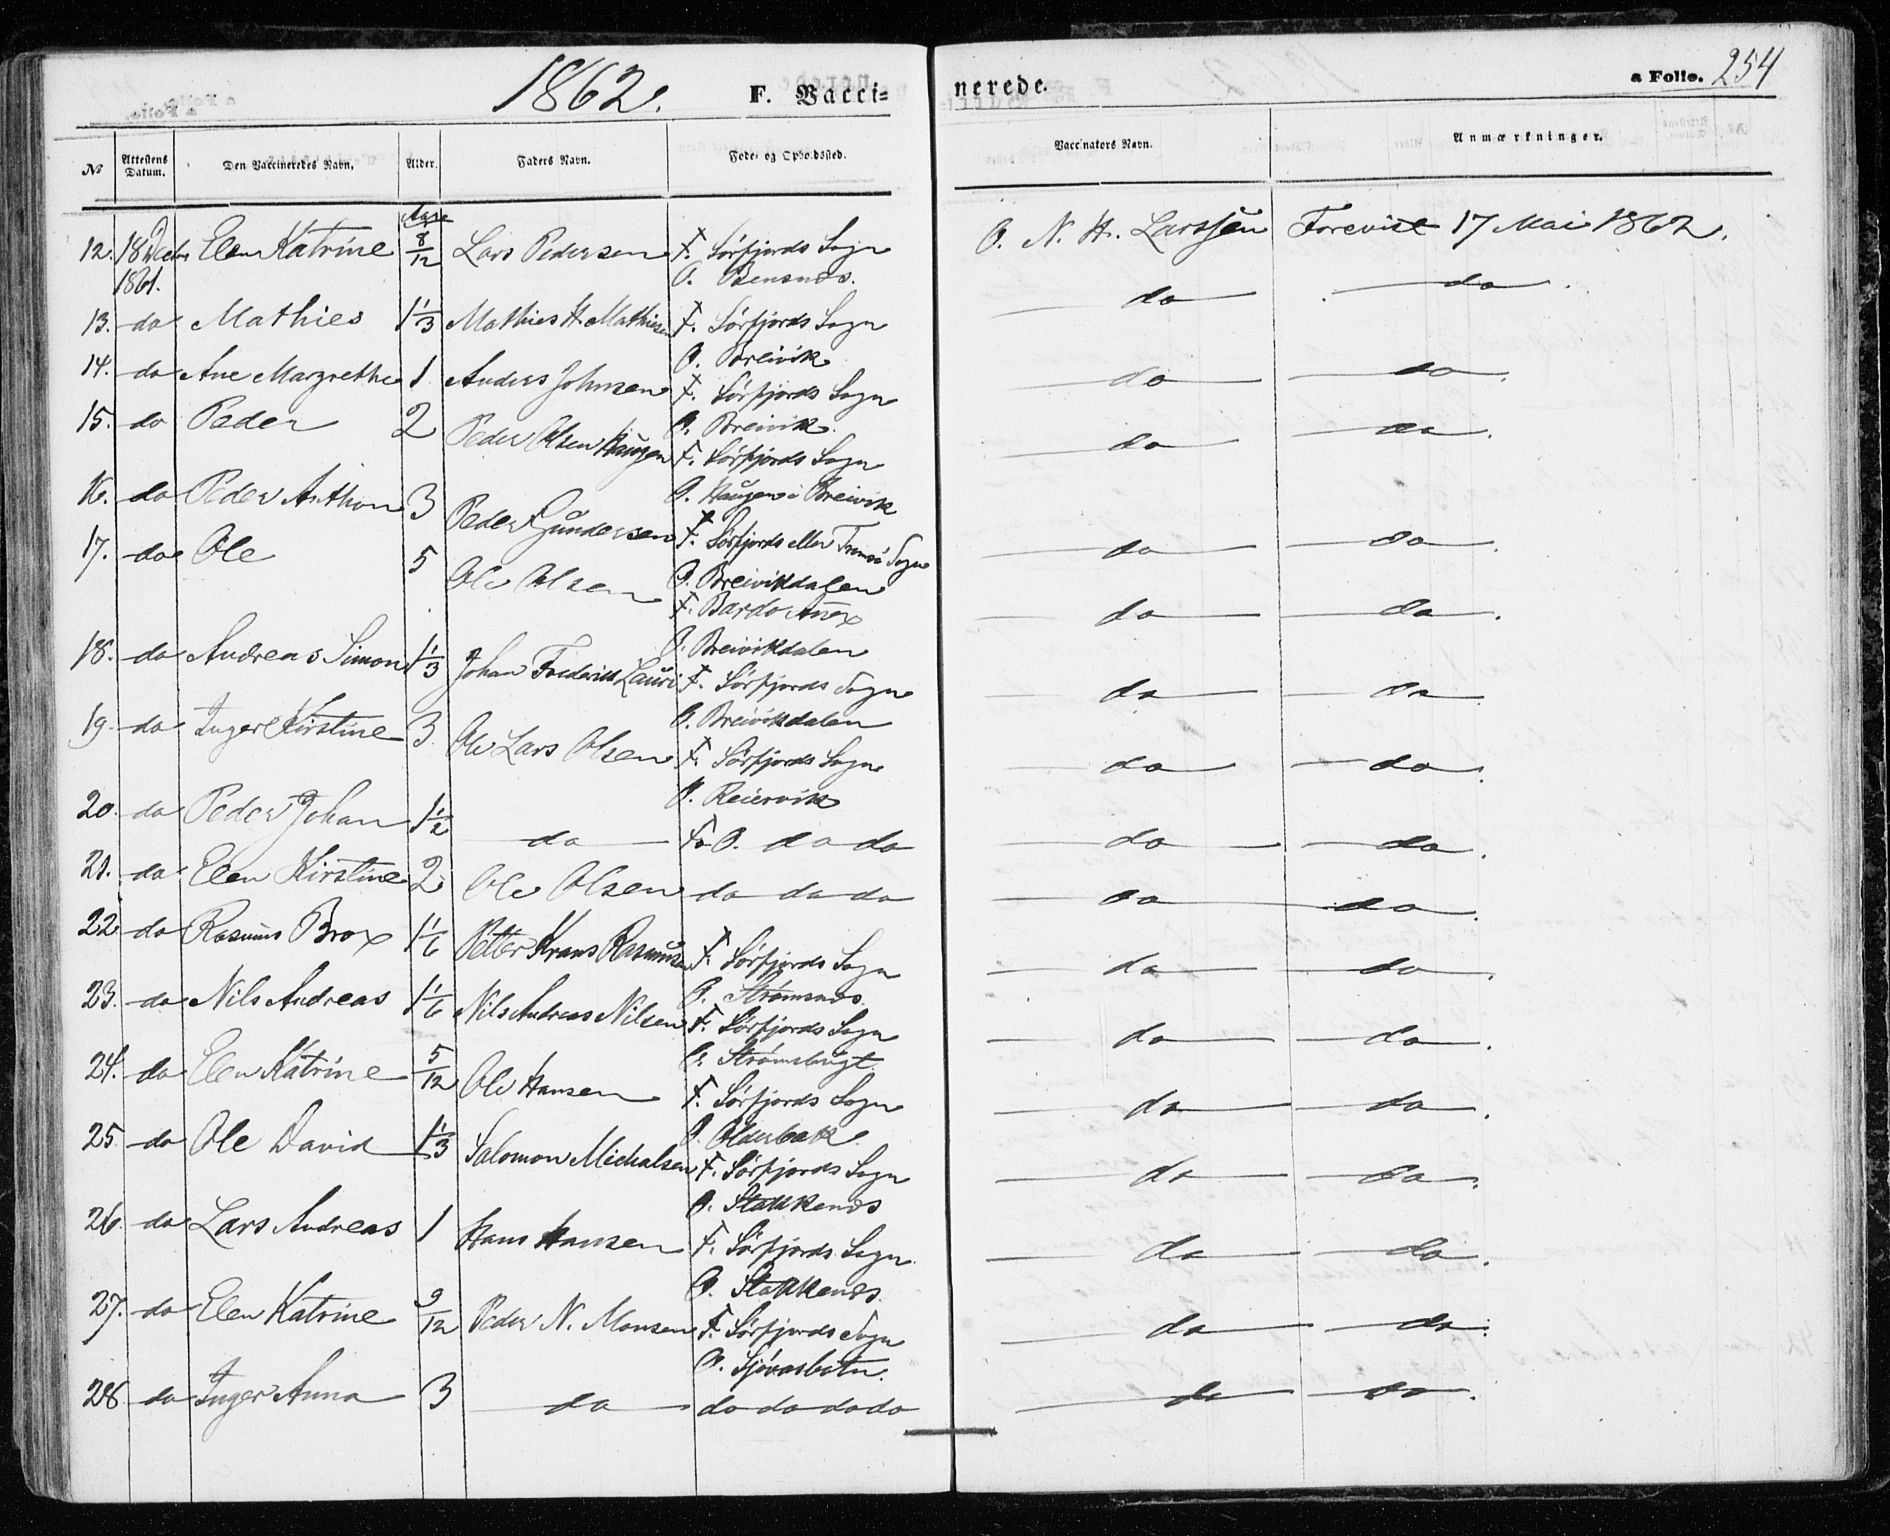 1862. F. Vacci=nerede. a Folio. 254
No Attestens Datum. Den Vaccineredes Navn. Alder. Faders Navn. Føde= og Opholdssted. Vaccinators Navn. Anmærkninger.
Aar
12. 18 Decbr 1861. Elen Katrine 8/12 Lars Pedersen F. Sörfjords Sogn O. N. H. Larssen Forevist 17 Mai 1862.
O. Bensnes.
13. do Mathies 1 1/3 Mathies H. Mathiesen F. Sörfjords Sogn do do
O. Breivik
14. do Ane Margrethe 1 Anders Johnsen F. Sörfjords Sogn do do.
O. Breivik.
15. do Peder 2 Peder Olsen Haugen F. Sörfjords Sogn do do.
O. Haugen i Breivik
16. do Peder Anthon 3 Peder Gundersen F. Sörfjords eller Tromsö Sogn do do.
O. Breivikdalen
17. do Ole 5 Ole Olsen F. Bardo Anex do do.
O. Breivikdalen
18. do Andreas Simon 1 1/3 Johan Frederik Lauri F. Sörfjords Sogn do do.
O. Breivikdalen
19. do Inger Kirstine 3 Ole Lars Olsen F. Sörfjords Sogn do do.
O. Reiervik
20. do Peder Johan 1 1/2 do F. O. do do do do.
21. do Elen Kirstine 2 Ole Olsen do do do do do.
22. do Rasmus Brox 1 1/6 Petter Krans Rasmussen F. Sörfjords Sogn do do.
O. Strømsnes.
23. do Nils Andreas 1 1/6 Nils Andreas Nilsen F. Sörfjords Sogn do do.
O. Strømsbugt.
24. do Elen Katrine 5/12 Ole Hansen F. Sörfjords Sogn do do.
O. Olderbak.
25. do Ole David 1 1/3 Salomon Michalsen F. Sörfjords Sogn do do.
O. Stakkenes
26. do Lars Andreas 1 Hans Hansen F. Sörfjords Sogn do do.
O. Stakkenes.
27. do Elen Katrine 9/12 Peder N. Monsen F. Sörfjords Sogn do do.
O. Sjövasbotn.
28 do Inger Anna 3 do do do do do do do.